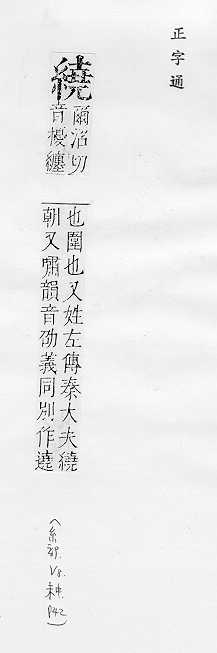 正字通
繞
爾沼切
音擾纏
也圍也又姓左傳秦大夫繞
朝又嘯韻音劭義同別作遶
(糸部
V8.
P42)